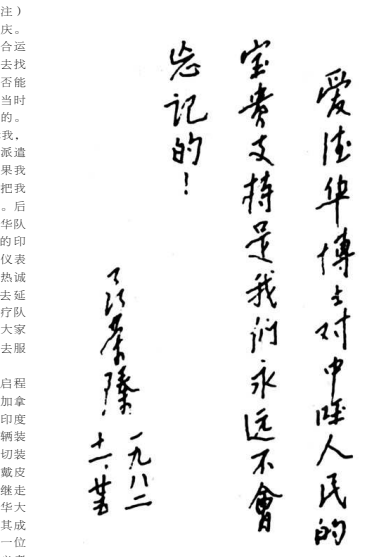 注）
庆。
合运
去找
否能
当时
的。
我，
派遣
果我
把我
。后
华队
的印
仪表
热诚
去延
疗队
大家
去服
启程
加拿
印度
辆装
切装
戴皮
继走
华大
其成
一位
爱德华博士对中国人民的
宝贵支持是我们永远不會
忘记的！
聂荣臻
一九八二
十一.